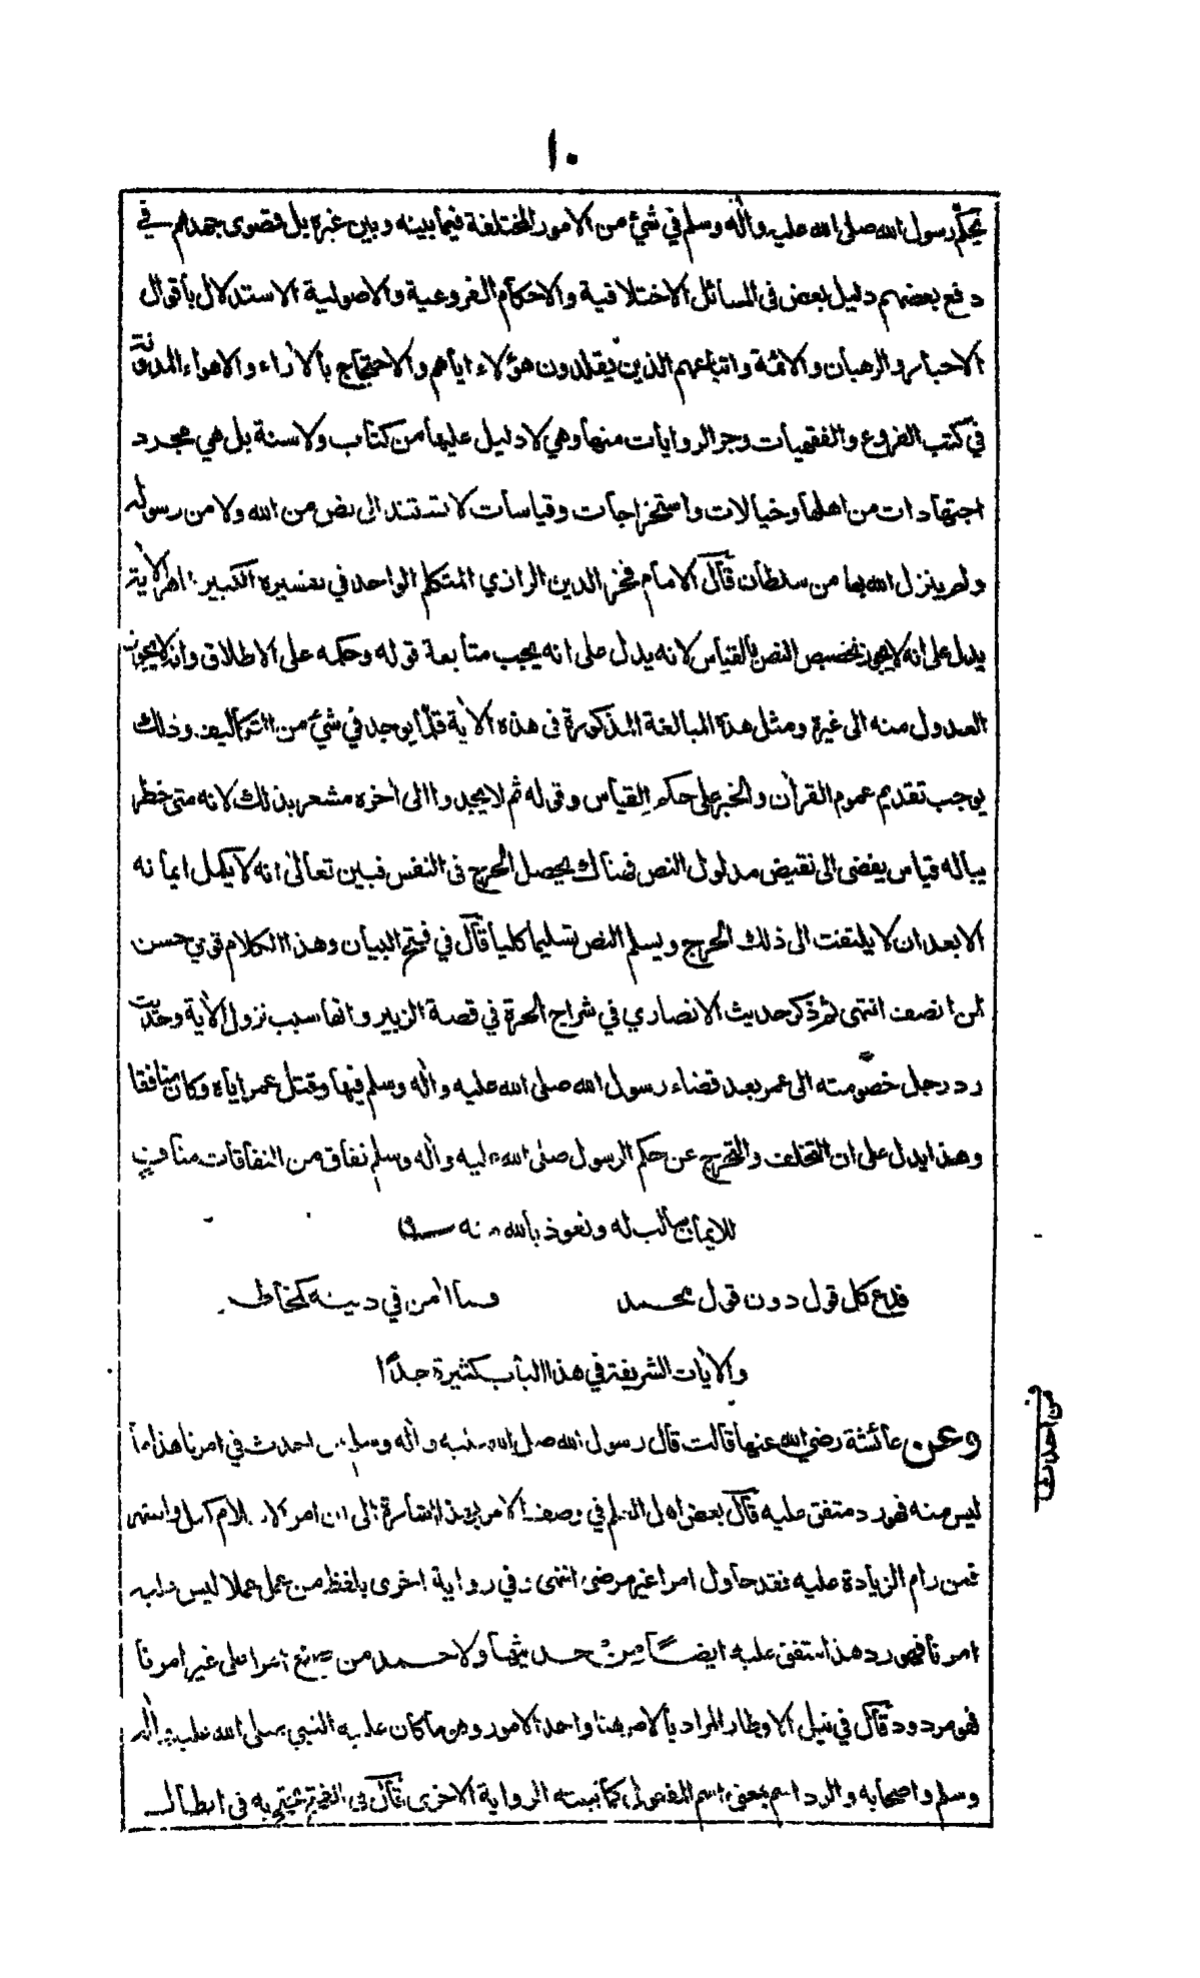 ١٠
يحكّم رسول الله صلى الله عليه واٰله وسلم في شيء من الامور المختلفة فيما بينه وبين غيره بل قصوى جهدهم في
دفع بعضهم دليل بعض فى المسائل الاختلافية والاحكام الفروعية والاصولية الاستدلال بأقوال
الاحبار والرهبان والائمة واتباعهم الذين يقلدون هؤلاء اياهم والاحتجاج بالأراء والاهواء المدونة
في كتب الفروع والفقهيات وجر الروايات منها وهي لا دليل عليها من كتاب ولا سنة بل هي مجرد
اجتهادات من اهلها وخيالات واستخراجات وقياسات لا تستند الى نص من الله ولا من رسوله
ولم ينزل الله بها من سلطان قال الامام فخر الدين الرازي المتكلم الواحد في تفسيره الكبير ظاهر الأية
يدل على انه لا يجوز تخصيص النص بالقياس لانه يدل على انه يجب متابعة قوله وحكمه على الاطلاق وانه لا يجوز
العدول منه الى غيره ومثل هذه المبالغة المذكورة فى هذه الأية قلّما يوجد في شيء من التكاليف وذلك
يوجب تقديم عموم القرأن والخبر على حكم القياس وقوله ثم لا يجدوا الى اخره مشعر بذلك لانه متى خطر
بباله قياس يفضى الى نقيض مدلول النص فهناك يحصل الحرج فى النفس فبين تعالى انه لا يكمل ايمانه
الا بعد ان لا يلتفت الى ذلك الحرج ويسلم النص تسليما كليا قال في فتح البيان وهذا الكلام قوي حسن
لمن انصف انتهى ثم ذكر حديث الانصاري في شراج الحرة في قصة الزبير وانها سبب نزول الأية وحديث
رد رجل خصومته الى عمر بعد قضاء رسول الله صلى الله عليه واٰله وسلم فيها وقتل عمر اياه وكان منافقا
وهذا يدل على ان التخلف والتحرج عن حكم الرسول صلى الله عليه واٰله وسلم نفاق من النفاقات منافٍ
للايمان سالب له ونعوذ بالله منه
فدع كل قول دون قول محمد فما اٰمن في دينه كمخاطر
والأيات الشريفة في هذا الباب كثيرة جدًا
وعن عائشة رضي الله عنها قالت قال رسول الله صلى الله عليه واٰله وسلم من احدث في امرنا هذا ما
ليس منه فهو رد متفق عليه قال بعض اهل العلم في وصف الامر بهذا اشارة الى ان امر الاسلام كمل واشتهر
فمن رام الزيادة عليه فقد حاول امرا غير مرضى انتهى وفي رواية اخرى بلفظ من عمل عملا ليس عليه
امرنا فهو رد هذا متفق عليه ايضًا من حديثها ولاحمد من صنع امرا على غير امرنا
فهو مردود قال في نيل الاوطار المراد بالامر هنا واحد الامور وهو ما كان عليه النبي صلى الله عليه واٰله
وسلم واصحابه والرد اسم بمعنى اسم المفعول كما بينته الرواية الاخرى قال في الفتح يحتج به فى ابطال
من احدث